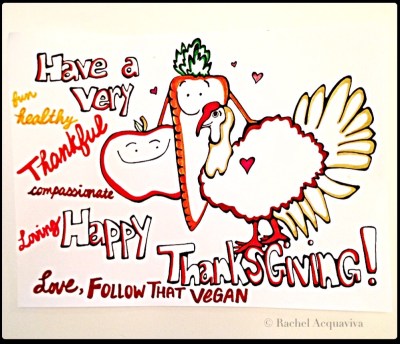 Have a
very
fun
healthy
Thankful
compassionate
Loving
Happy
Thanksgiving!
Love, Follow That Vegan
© Rachel Acquaviva